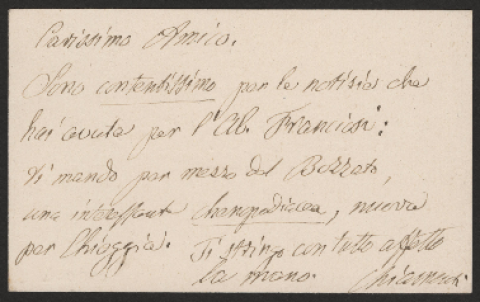 Carissimo Amico.
Sono contentissimo per la notizia che
hai avuta per l'Ab. Francesi:
Ti mando per mezzo del Bozzato,
una interessante, nuova
per Chioggia. Ti stringo con tutto affetto
la mano.